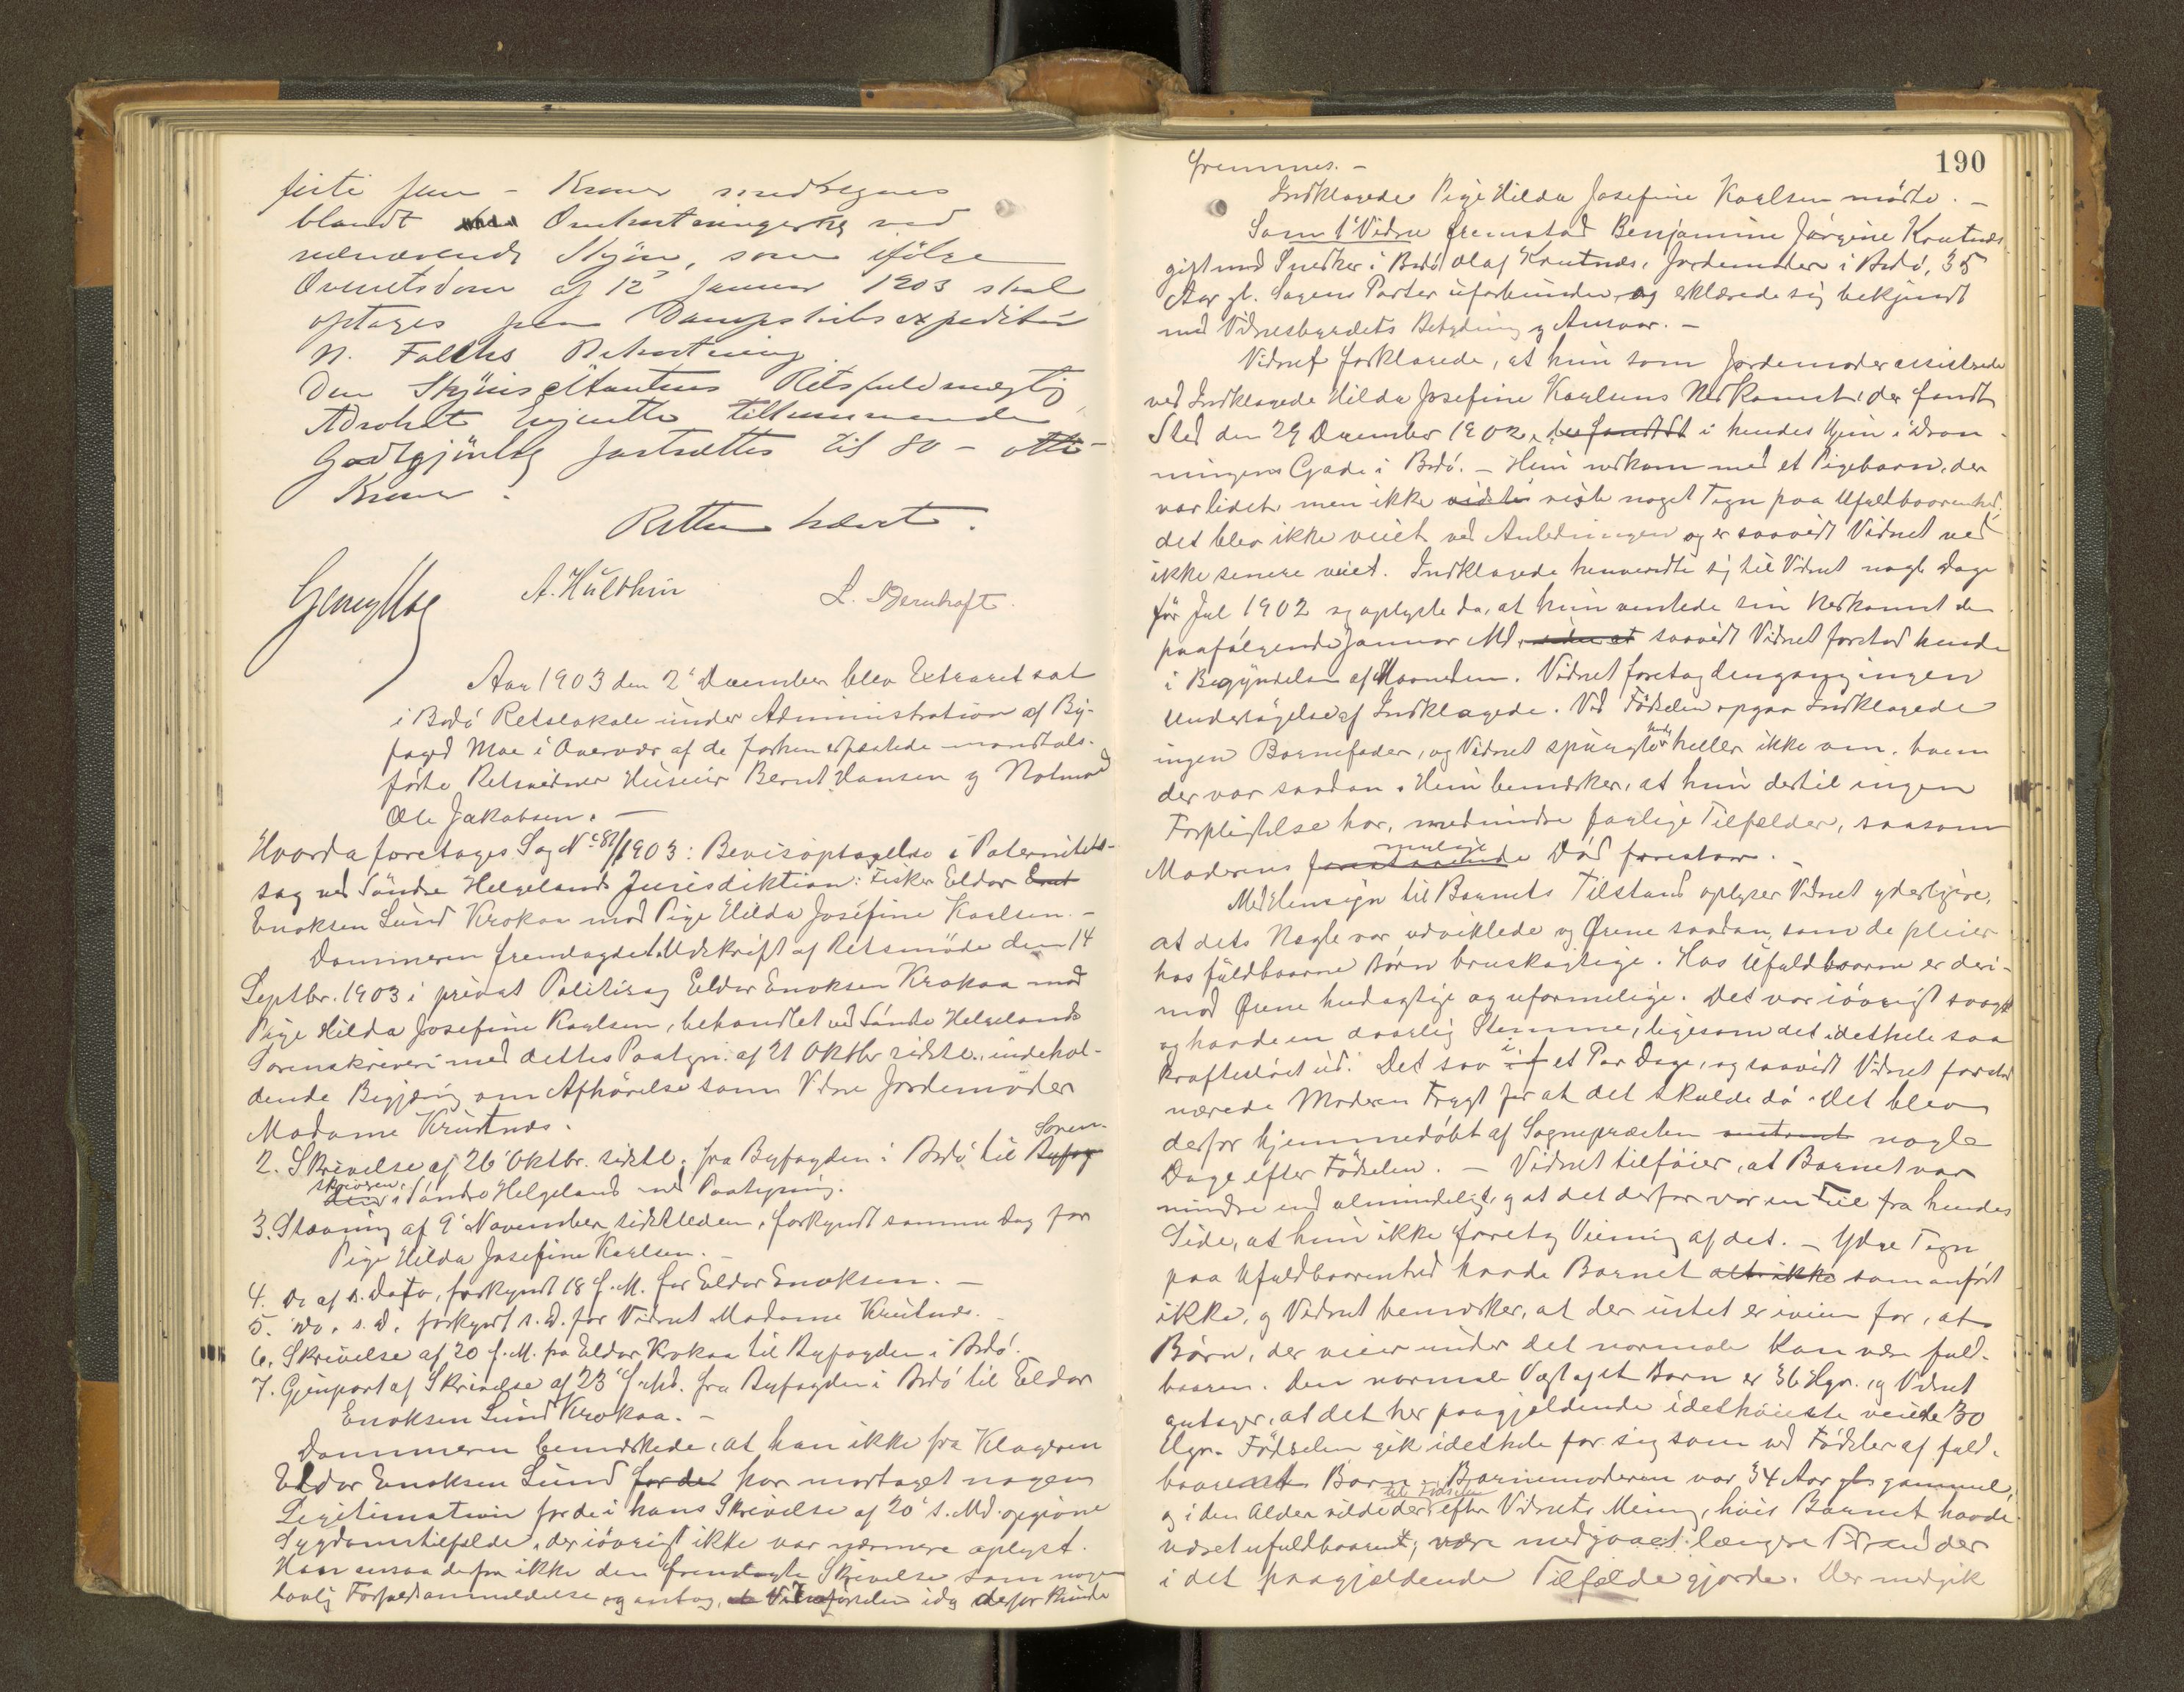 firti fem - Kroner medregnes
blandt Omkostningerne ved
nærværende Skjøn, som ifølge
Overretsdom af 12 Januar 1903 skal
optages paa Dampskibsexpeditør
N. Falchs Bekostning.
Den Skjønscitantens Retsfuldmægtig
Advokat tilkommende
Godtgjørelse fastsættes til 80 - otti -
Kroner.
Retten hævet.
A. Huldhin L. Bernhoft.
Aar 1903 den 2' December blev Extraret sat
i Bodø Retslokale under Administration af By-
foged Moe i Overvær af de forhen edfæstede mandtals-
førte Retsvidner Huseier Bernt Hansen og Notmand
Ole Jakobsen. -
Hvorda foretoges Sag No 81/1903: Bevisoptagelse i Paternitets-
sag ved Søndre Helgelands Jurisdiktion: Fisker Eldor
Enoksen Lund Krokaa mod Pige Hilda Josefine Karlsen. -
Dommeren fremlagde 1. Udskrift af Retsmøde den 14
Septbr. 1903 i privat Politisag Eldor Enoksen Krokaa mod
Pige Hilda Josefine Karlsen, behandlet ved Søndre Helgelands
Sorenskriveri med dettes Paategn. af 21 Oktbr sidstl., indehol-
dende Begjæring om Afhørelse som Vidne Jordemoder
Madame Krutnæs.
2. Skrivelse af 26' Oktbr. sidstl. fra Byfogden i Bodø til Byfog Soren-
skriveren i Søndre Helgeland med Paategning.
3. Stævning af 9' November sidstleden, forkyndt samme Dag for
Pige Hilda Josefine Karlsen. -
4. Do af s. Dato, forkyndt 18 f. M. for Eldor Enoksen. -
5. Do. s. D. forkyndt s. D. for Vidnet Madame Krutnæs. -
6. Skrivelse af 20 f. M. fra Eldor Krokaa til Byfogden i Bodø.
7. Gjenpart af Skrivelse af 23' f. Md. fra Byfogden i Bodø til Eldor
Enoksen Lund Krokaa. -
Dommeren bemærkede, at han ikke fra Klageren
Eldor Enoksen Lund for de har modtaget nogen
Legitimation for de i hans Skrivelse af 20' s. Md. opgivne
Sygdomstilfælde, der iøvrigt ikke var nærmere oplyst.
Han ansaa derfor ikke den fremlagte Skrivelse som nogen
lovlig Forfaldsanmeldelse og antog, at Vidneførselen idag derfor kunde
190
fremmes. -
Indklagede Pige Hilda Josefine Karlsen mødte. -
Som 1' Vidne fremstod Benjamine Jørgine Krutnæs
gift med Snedker i Bodø Olaf Krutnæs, Jordemoder i Bodø, 35
Aar gl. Sagens Parter uforbunden, og erklærede sig bekjendt
med Vidnesbyrdets Betydning og Ansvar. -
Vidnet forklarede, at hun som Jordemoder assisterede
ved Indklagede Hilda Josefine Karlsens Nedkomst, der fandt
Sted den 29 December 1902, der fandt St i hendes Hjem i Dron-
ningens Gade i Bodø. - Hun nedkom med et Pigebarn, der
var lidet, men ikke vidste viste noget Tegn paa Ufuldbaarenhed;
det blev ikke veiet ved Anledningen og er saavidt Vidnet ved
ikke senere veiet. Indklagede henvendte sig til Vidnet nogle Dage
før Jul 1902 og oplyste da, at hun ventede sin Nedkomst den
paafølgende Januar Md, saavidt Vidnet forstod hende
i Begyndelsen af Maaneden. Vidnet foretog dengang ingen
Undersøgelse af Indklagede. Ved Fødselen opgav Indklagede
ingen Barnefader, og Vidnet spurgte hende heller ikke om, hvem
der var saadan. Hun bemærker, at hun dertil ingen
Forpligtelse har, medmindre farlige Tilfælder, saasom
Moderens forestaaende mulige Død forestaar. -
Med Hensyn til Barnets Tilstand oplyser Vidnet yderligere,
at dets Negle var udviklede og Ørene saadan, som de pleier
hos fuldbaarne Børn bruskagtige. Hos Ufuldbaarne er deri-
mod Ørene hudagtige og uformelige. Det var iøvrigt svagt
og havde en daarlig Stemme, ligesom det idethele saa
kraftesløst ud. Det sov i et Par Dage, og saavidt Vidnet forstod
nærede Moderen Frygt for at det skulde dø. Det blev
derfor hjemmedøbt af Sognepræsten nogle
Dage efter Fødselen. - Vidnet tilføier, at Barnet var
mindre end almindeligt, og at det derfor var en Feil fra hendes
Side, at hun ikke foretog Veining af det. - Ydre Tegn
paa Ufuldbaarenhed havde Barnet altsikke som anført
ikke, og Vidnet bemærker, at der intet er iveien for, at
Børn, der veier under det normale kan være fuld-
baaren. Den normale Vægt af et Barn er 36 Hgr. og Vidnet
antager, at det her paagjældende idethøieste veiede 30
Hgr. Fødselen gik idethele for sig som ved Fødsler af fuld-
baarent Barn. Barnemoderen var 34 Aar gl gammel,
og i den Alder vilde der til Fødselen efter Vidnets Mening, hvis Barnet havde
været ufuldbaarent, være medgaaet længere Tid end der
i det paagjældende Tilfælde gjorde. Der medgik